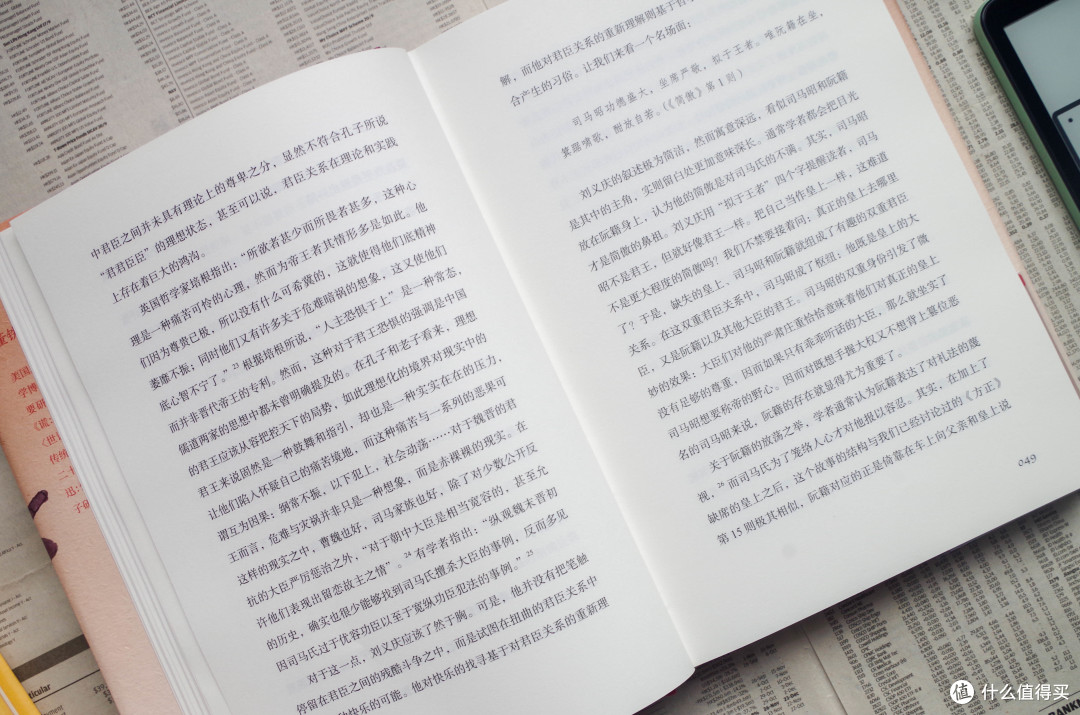 中君臣之间并未具有理论上的尊卑之分，显然不符合孔子所说
“君君臣臣”的理想状态，甚至可以说，君臣关系在理论和实践
上存在着巨大的鸿沟。
英国哲学家培根指出：“所欲者甚少而所畏者甚多，这种心
理是一种痛苦可怜的心理，然而为帝王者其情形多是如此。他
们因为尊贵已极，所以没有什么可希冀的，这就使得他们底精神
萎靡不振；同时他们又有许多关于危难暗祸的想象，这又使他们
底心智不宁了。”23 根据培根所说，“人主恐惧于上”是一种常态，
而并非晋代帝王的专利。然而，这种对于君王恐惧的强调是中国
儒道两家的思想中都未曾明确提及的。在孔子和老子看来，理想
的君王应该从容把控天下的局势，如此理想化的境界对现实中的
君王来说固然是一种鼓舞和指引，却也是一种实实在在的压力，
让他们陷入怀疑自己的痛苦境地，而这种痛苦与一系列的恶果可
谓互为因果：纲常不振，以下犯上，社会动荡……对于魏晋的君
王而言，危难与灾祸并非只是一种想象，而是赤裸裸的现实。在
这样的现实之中，曹魏也好，司马家族也好，除了对少数公开反
抗的大臣严厉惩治之外，“对于朝中大臣是相当宽容的，甚至允
许他们表现出留恋故主之情”。24 有学者指出：“纵观魏末晋初
的历史，确实也很少能够找到司马氏擅杀大臣的事例，反而多见
因司马氏过于优容功臣以至于宽纵功臣犯法的事例。”25
对于这一点，刘义庆应该了然于胸。可是，他并没有把笔触
停留在君臣之间的残酷斗争之中，而是试图在扭曲的君臣关系中
种快乐的可能。他对快乐的找寻基于对君臣关系的重新理
解，而他对君臣关系的重新理解则基于
合产生的习俗。让我们来看一个名场面：
司马昭功德盛大，坐席严敬，拟于王者。唯阮籍在坐，
箕踞啸歌，酣放自若。（《简傲》第 1 则）
刘义庆的叙述极为简洁，然而寓意深远，看似司马昭和阮籍
是其中的主角，实则留白处更加意味深长。通常学者都会把目光
放在阮籍身上，认为他的简傲是对司马氏的不满。其实，司马昭
才是简傲的鼻祖。刘义庆用“拟于王者”四个字提醒读者，司马
昭不是君王，但就好像君王一样。把自己当作皇上一样，这难道
不是更大程度的简傲吗？我们不禁要接着问：真正的皇上去哪里
了？于是，缺失的皇上、司马昭和阮籍就组成了有趣的双重君臣
关系。在这双重君臣关系中，司马昭成了枢纽：他既是皇上的大
臣，又是阮籍以及其他大臣的君王。司马昭的双重身份引发了微
妙的效果：大臣们对他的严肃庄重恰恰意味着他们对真正的皇上
没有足够的尊重，因而如果只有乖乖听话的大臣，那么就坐实了
司马昭想要称帝的野心。因而对既想手握大权又不想背上篡位恶
名的司马昭来说，阮籍的存在就显得尤为重要了。
关于阮籍的放荡之举，学者通常认为阮籍表达了对礼法的蔑
视，26 而司马氏为了笼络人心才对他报以容忍。其实，在加上了
缺席的皇上之后，这个故事的结构与我们已经讨论过的《方正》
第 15 则极其相似，阮籍对应的正是倚靠在车上向父亲和皇上说
049
值 什么值得买